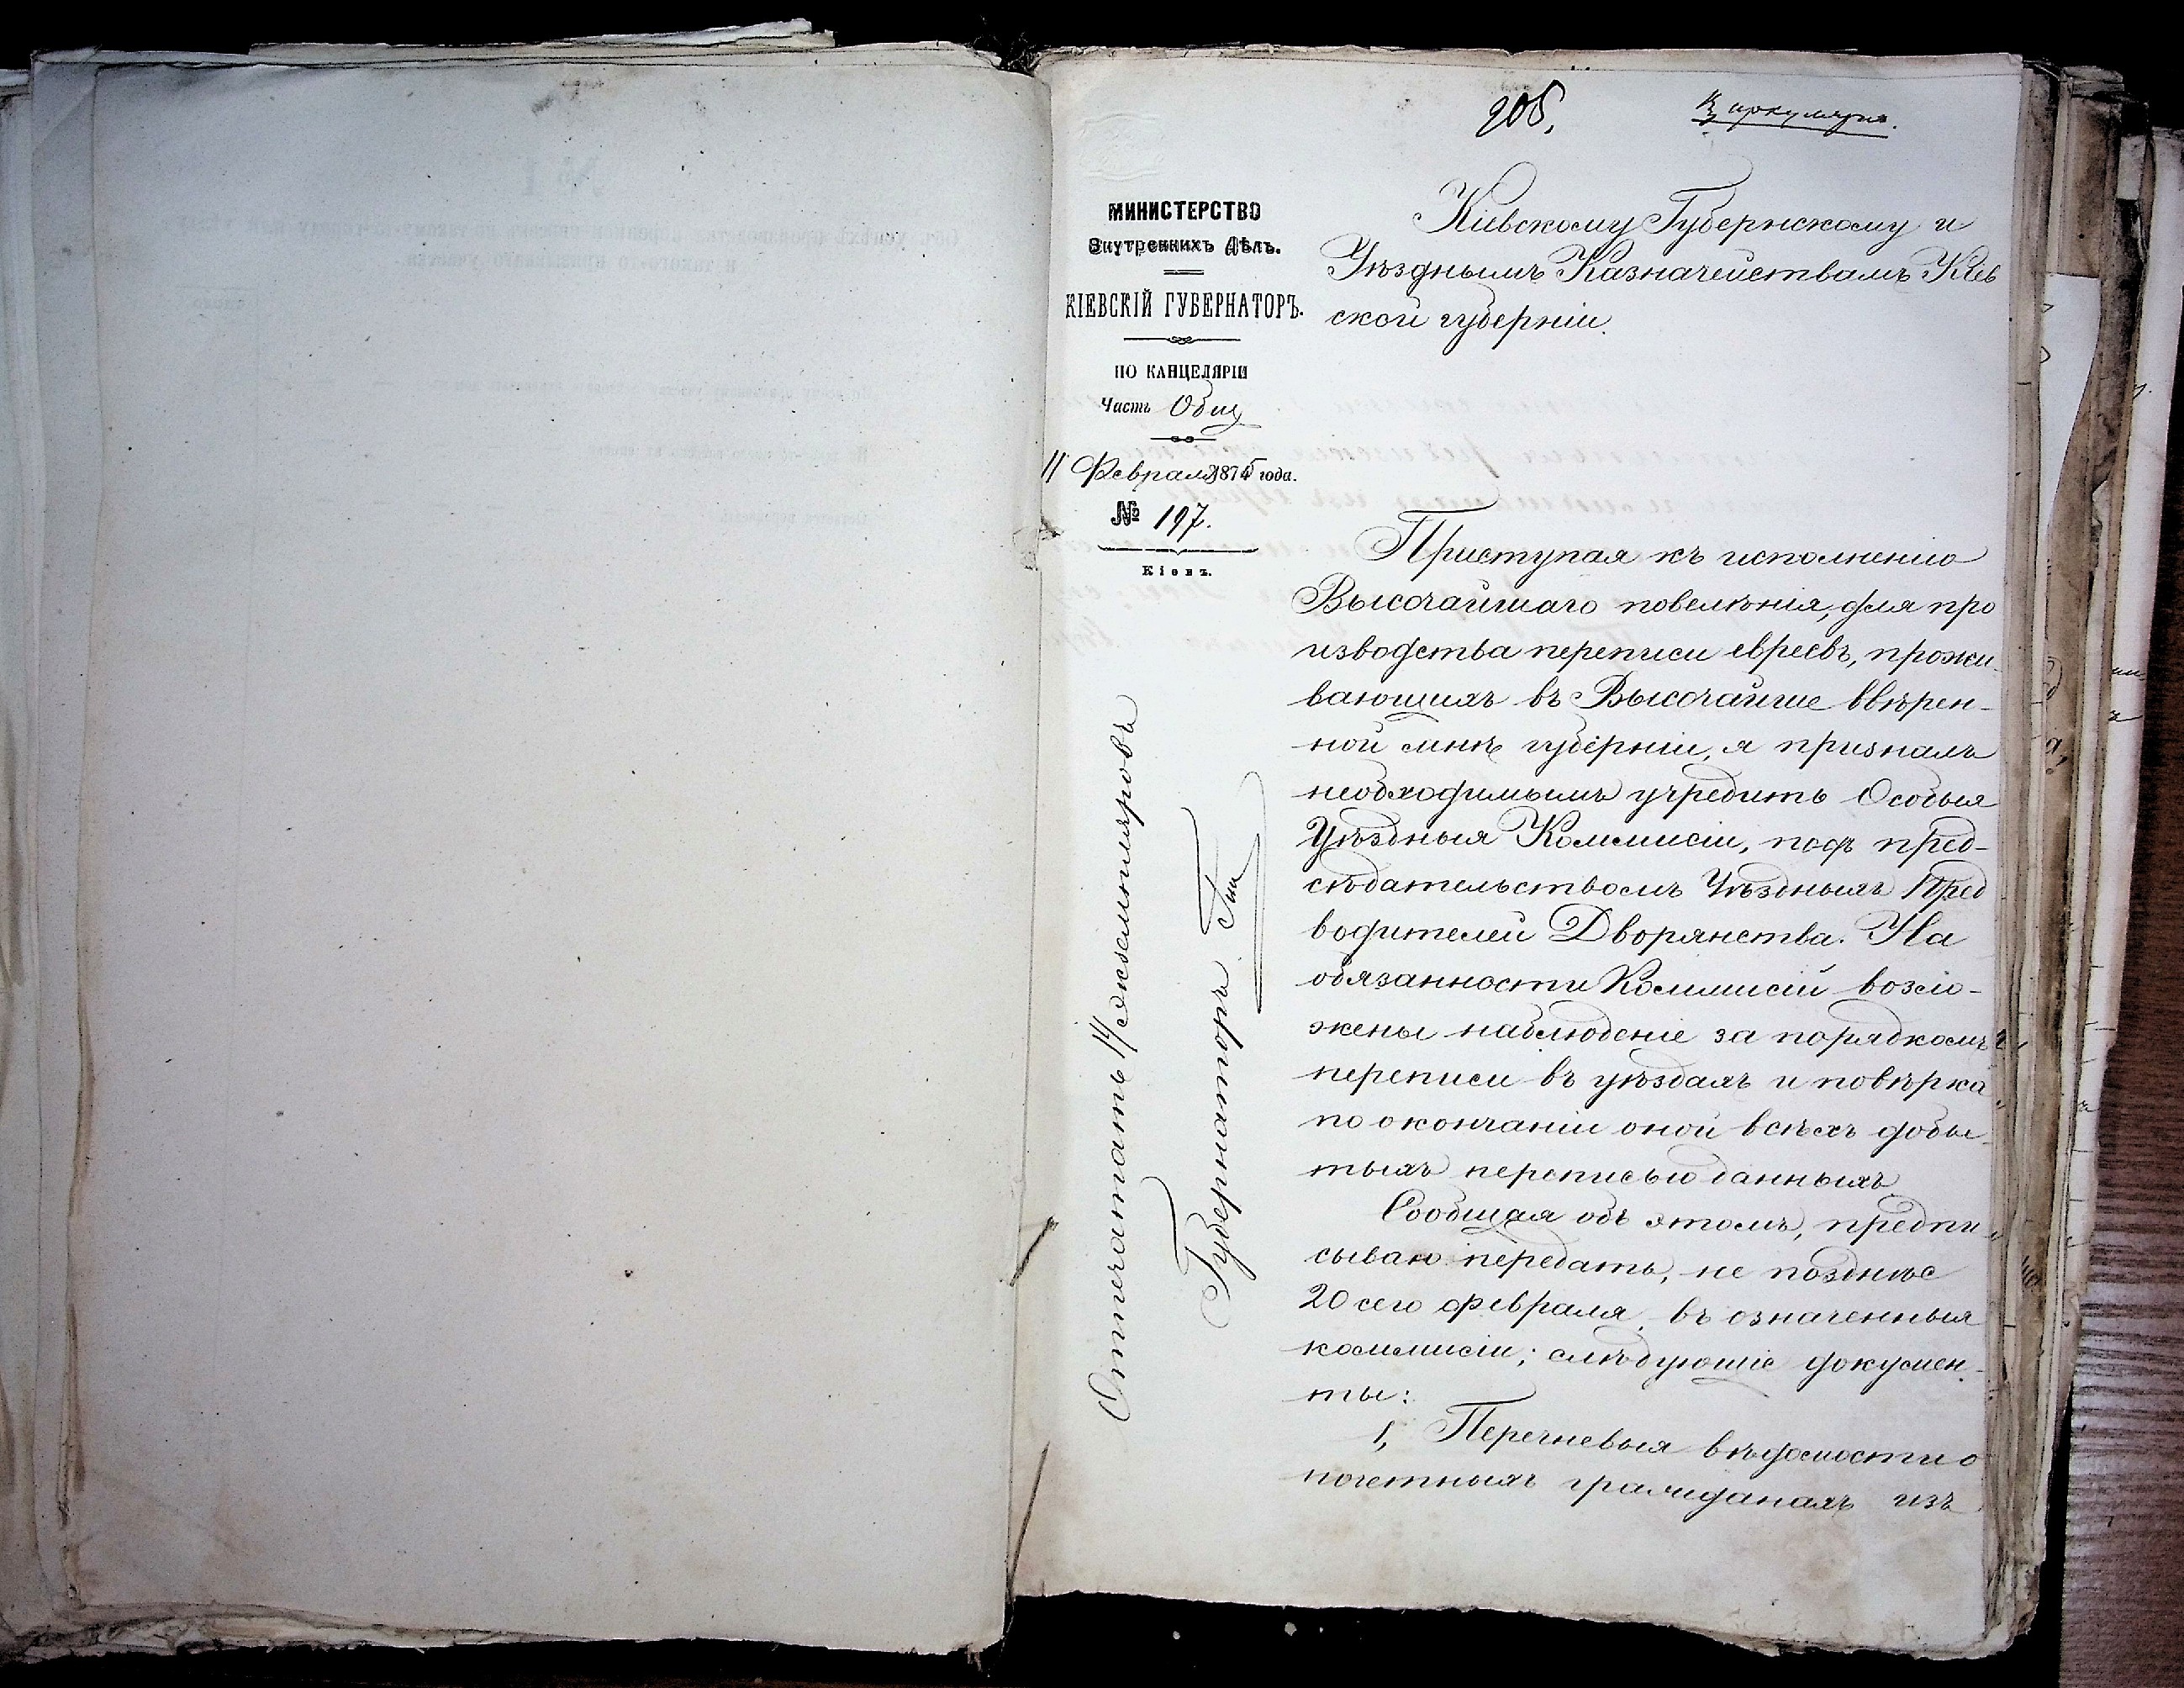 205.
Циркулярно.
МИНИСТЕРСТВО
Внутреннихъ Дѣлъ.
КІЕВСКІЙ ГУБЕРНАТОРЪ.
ПО КАНЦЕЛЯРІИ
Часть Общ
11 Февраля 1875 года.
№ 197.
Кіевъ.
Кіевскому Губернскому и
Уѣзднымъ Казначействамъ Кіев
ской губерніи.
Приступая къ исполненію
Высочайшаго повелѣнія, для про
изводства переписи евреевъ, прожи-
вающихъ въ Высочайше ввѣрен-
ной мнѣ губерніи, я призналъ
необходимымъ учредить Особыя
Уѣздныя Коммисіи, подъ пред-
сѣдательствомъ Уѣздныхъ Пред
водителей Дворянства. На
обязанности Коммисій возло-
жены наблюденіе за порядкомъ
переписи въ уѣздахъ и повѣрка
по окончаніи оной всѣхъ добы-
тыхъ переписью данныхъ
Сообщая объ этомъ, предпи-
сываю передать, не позднѣе
20 сего февраля, въ означенныя
коммисіи; слѣдующіе докумен-
ты:
1, Перечневыя вѣдомости о
почетныхъ гражданахъ изъ
Отпечатать 14 экземпляровъ
Губернаторъ